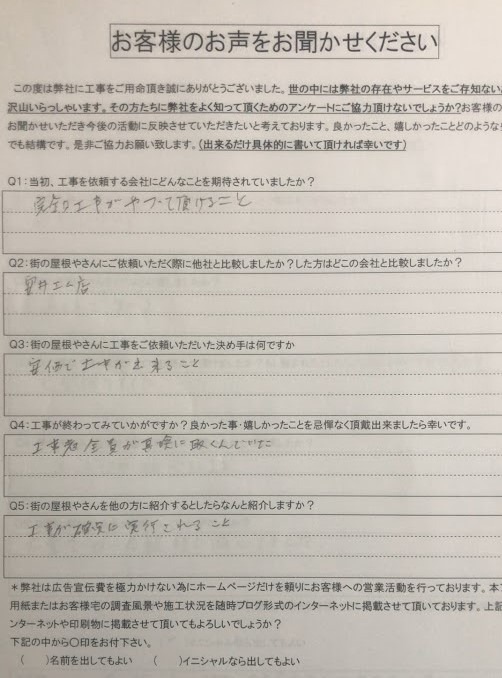 お客様のお声をお聞かせください
この度は弊社に工事をご用命頂き誠にありがとうございました。世の中には弊社の存在やサービスをご存知ない
沢山いらっしゃいます。その方たちに弊社をよく知って頂くためのアンケートにご協力頂けないでしょうか?お客様の
お聞かせいただき今後の活動に反映させていただきたいと考えております。良かったこと、嬉しかったことどのような
でも結構です。是非ご協力お願い致します。(出来るだけ具体的に書いて頂ければ幸いです)
Q1:当初、工事を依頼する会社にどんなことを期待されていましたか?
工事がやって頂けること
Q2:街の屋根やさんにご依頼いただく際に他社と比較しましたか?した方はどこの会社と比較しましたか?
井工ム店
Q3:街の屋根やさんに工事をご依頼いただいた決め手は何ですか
安価で工事が出来ること
Q4:工事が終わってみていかがですか?良かった事・嬉しかったことを忌憚なく頂戴出来ましたら幸いです。
工事者全員が真険に取くんでいた
Q5:街の屋根やさんを他の方に紹介するとしたらなんと紹介しますか?
工事が確実に実行されること
*弊社は広告宣伝費を極力かけない為にホームページだけを頼りにお客様への営業活動を行っております。本
用紙またはお客様宅の調査風景や施工状況を随時ブログ形式のインターネットに掲載させて頂いております。上記
ンターネットや印刷物に掲載させて頂いてもよろしいでしょうか?
下記の中から〇印をお付下さい。
( )名前を出してもよい ( )イニシャルなら出してもよい